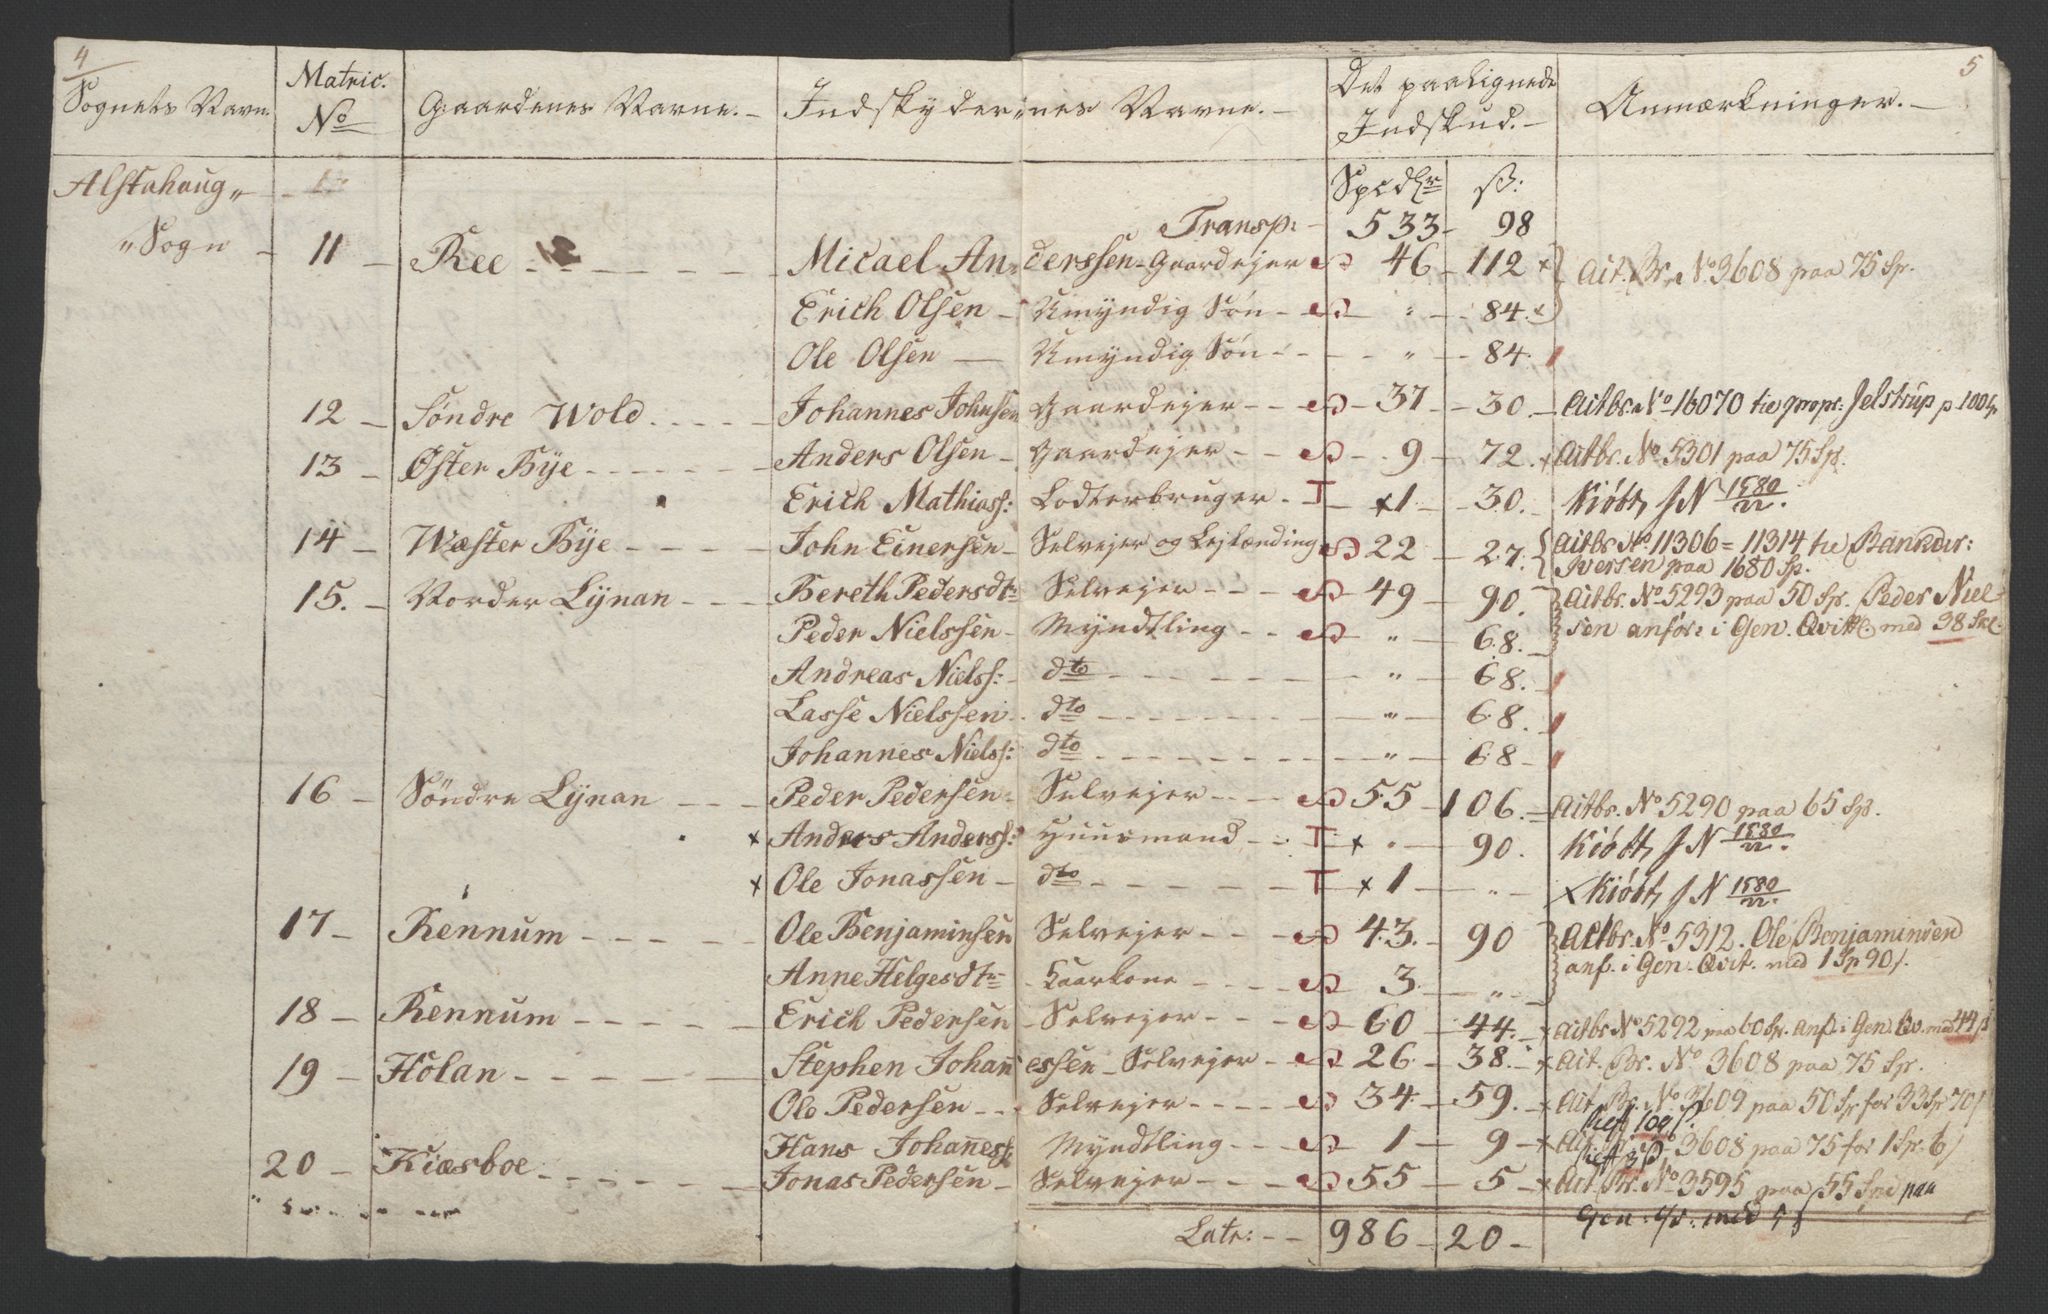 4
5
Sognets Navn. Matric. No Gaardenes Navne. - Indskydernes Navne. - Det paalignede Indskud. - Anmærkninger. -
Spcdlr ss:
Alstahaug „
Transp: 533 - 98
„ Sogn - 11 - Ree - - - Micael Anderssen - Gaardejer S 46 - 112 x Ait. Br. No 3608 paa 75 Sp.
Erich Olsen - Umyndig Søn - S - " - 84. x
Ole Olsen - Umyndig Søn - - - " - 84.
12 - Søndre Wold - - - Johannes Johnsen Gaardejer - - S - 37 - 30. - Aitbr. No 16070 til propr: Jelstrup p 100 Sp
13 - Øster Bye - - - Anders Olsen - Gaardejer - - S - 9 - 72. x Aitbr. No 5301 paa 75 Sp.
Erich Mathiass: Lodterbruger - T - x 1 - 30. - Kiøbt, J N 1580/n.
14 - Wæster Bye - - - John Einersen - Selvejer og Lejlænding S 22 - 27. Aitbr No 11306 = 11314 til Bankdir:
Iversen paa 1680 Sp.
15. - Norder Lynan - - - Bereth Pedersdtr Selvejer - - - S - 49 - 90. Aitbr. No 5293 paa 50 Sp. Peder Niel-
Peder Nielssen - Myndtling - - S - " - 68. sen anfør: i Gen. Qvitt. med 38 Skl.
Andreas Niels: - dto - - - " - 68.
Lasse Nielssen - dto - - - " - 68.
Johannes Niels: dto - - - " - 68 -
16 - Søndre Lynan - - - Peder Pedersen - Selvejer - - - S 55 - 106. = Aitbr. No 5290 paa 65 Sp.
x Anders Anders: Huusmand - - T - x " - 90. Kiøbt, J N 1580/n.
x Ole Jonassen - dto - - - T - x 1 - " - x Kiøbt, J N 1580/n.
17 - Rennum - - - Ole Benjaminsen Selvejer - - - S - 43. - 90 Aitbr. No 5312. Ole Benjaminsen
anf. i Gen. Qvit. med 1 Sp 90 s.
Anne Helgesdtr - Kaarkone - - - S - 3 - "
18 - Rennum - - - Erich Pedersen - Selvejer - - - S - 60 - 44. x Aitbr No 5292 paa 60 Sp. anf. i Gen Qv. med 44 s
19 - Holan - - - Stephen Johannessen - Selvejer - S - 26 - 38. - x Ait. Br. No 3608 paa 75 Sp.
Ole Pedersen - - Selvejer - - - S - 34 - 59. - x Ait. Br. No 3609 paa 50 Sp for 33 Sp 70 s
Hans Johaness: Myndtling - - S - 1 - 9 - x Ait. Br. No 3608 paa 75 for 1 Sp. 6 s
20 - Kiæsboe - - - Jonas Pedersen - Selvejer - - - S - 55 - 5 - x Ait. Br. No 3595 paa 55 Spd paa
Gen: Qv. med 5 s
Latr: - - 986 - 20 -